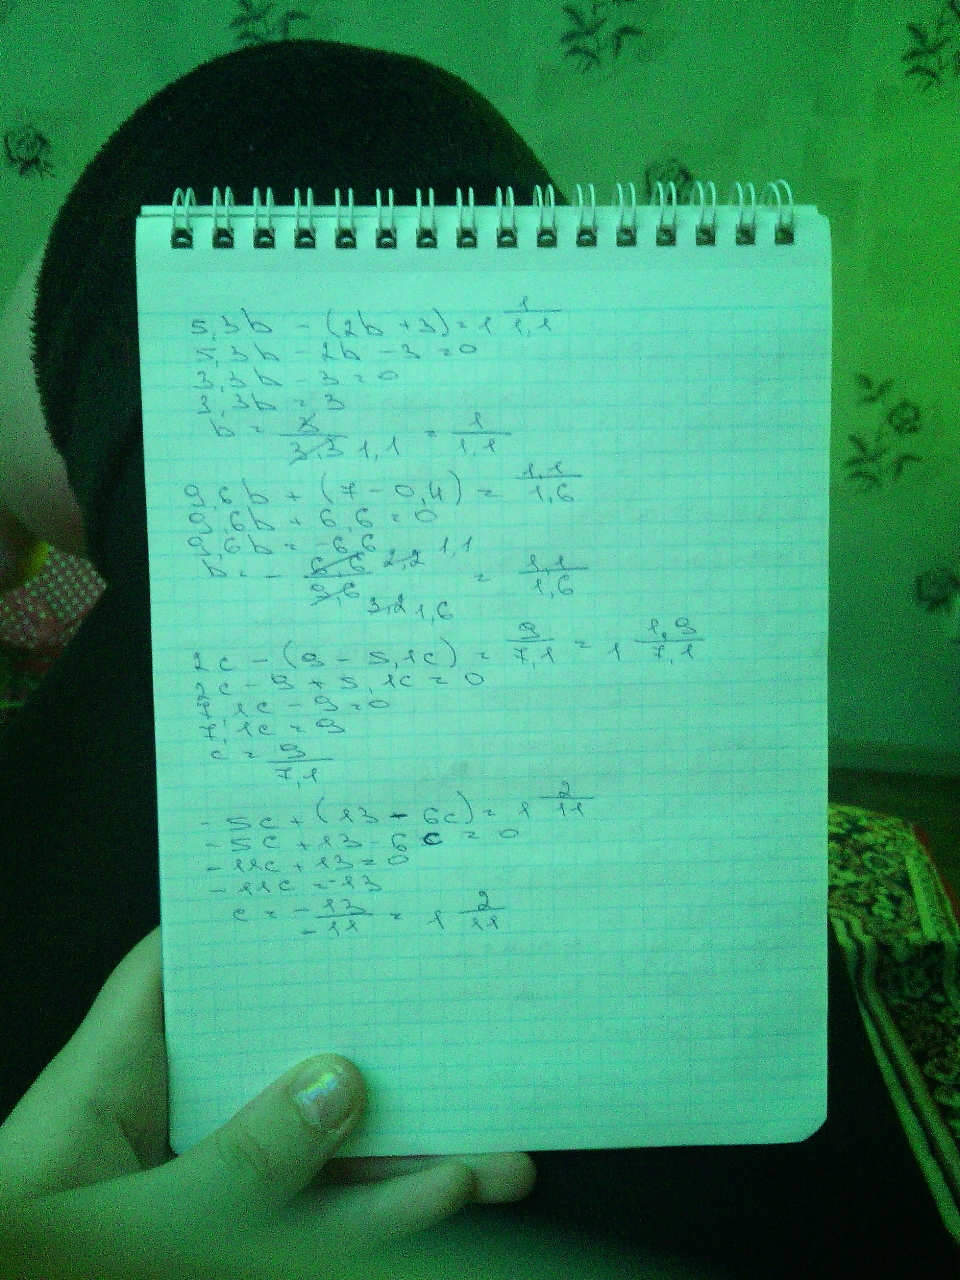 5,3b - (2b + 3) = 1 1/1,1
5,3b - 2b - 3 = 0
3,3b - 3 = 0
3,3b = 3
b = 3/3,3 1,1 = 1/1,1
9,6b + (7 - 0,4) = 1,1/1,6
9,6b + 6,6 = 0
9,6b = -6,6
b = - 6,6/9,6 2,2 1,1 3,2 1,6 = 1,1/1,6
2c - (9 - 5,1c) = 9/7,1 = 1 1,9/7,1
2c - 9 + 5,1c = 0
7,1c - 9 = 0
7,1c = 9
c = 9/7,1
-5c + (13 - 6c) = 1 2/11
-5c + 13 - 6c = 0
-11c + 13 = 0
-11c = -13
c = -13/-11 = 1 2/11